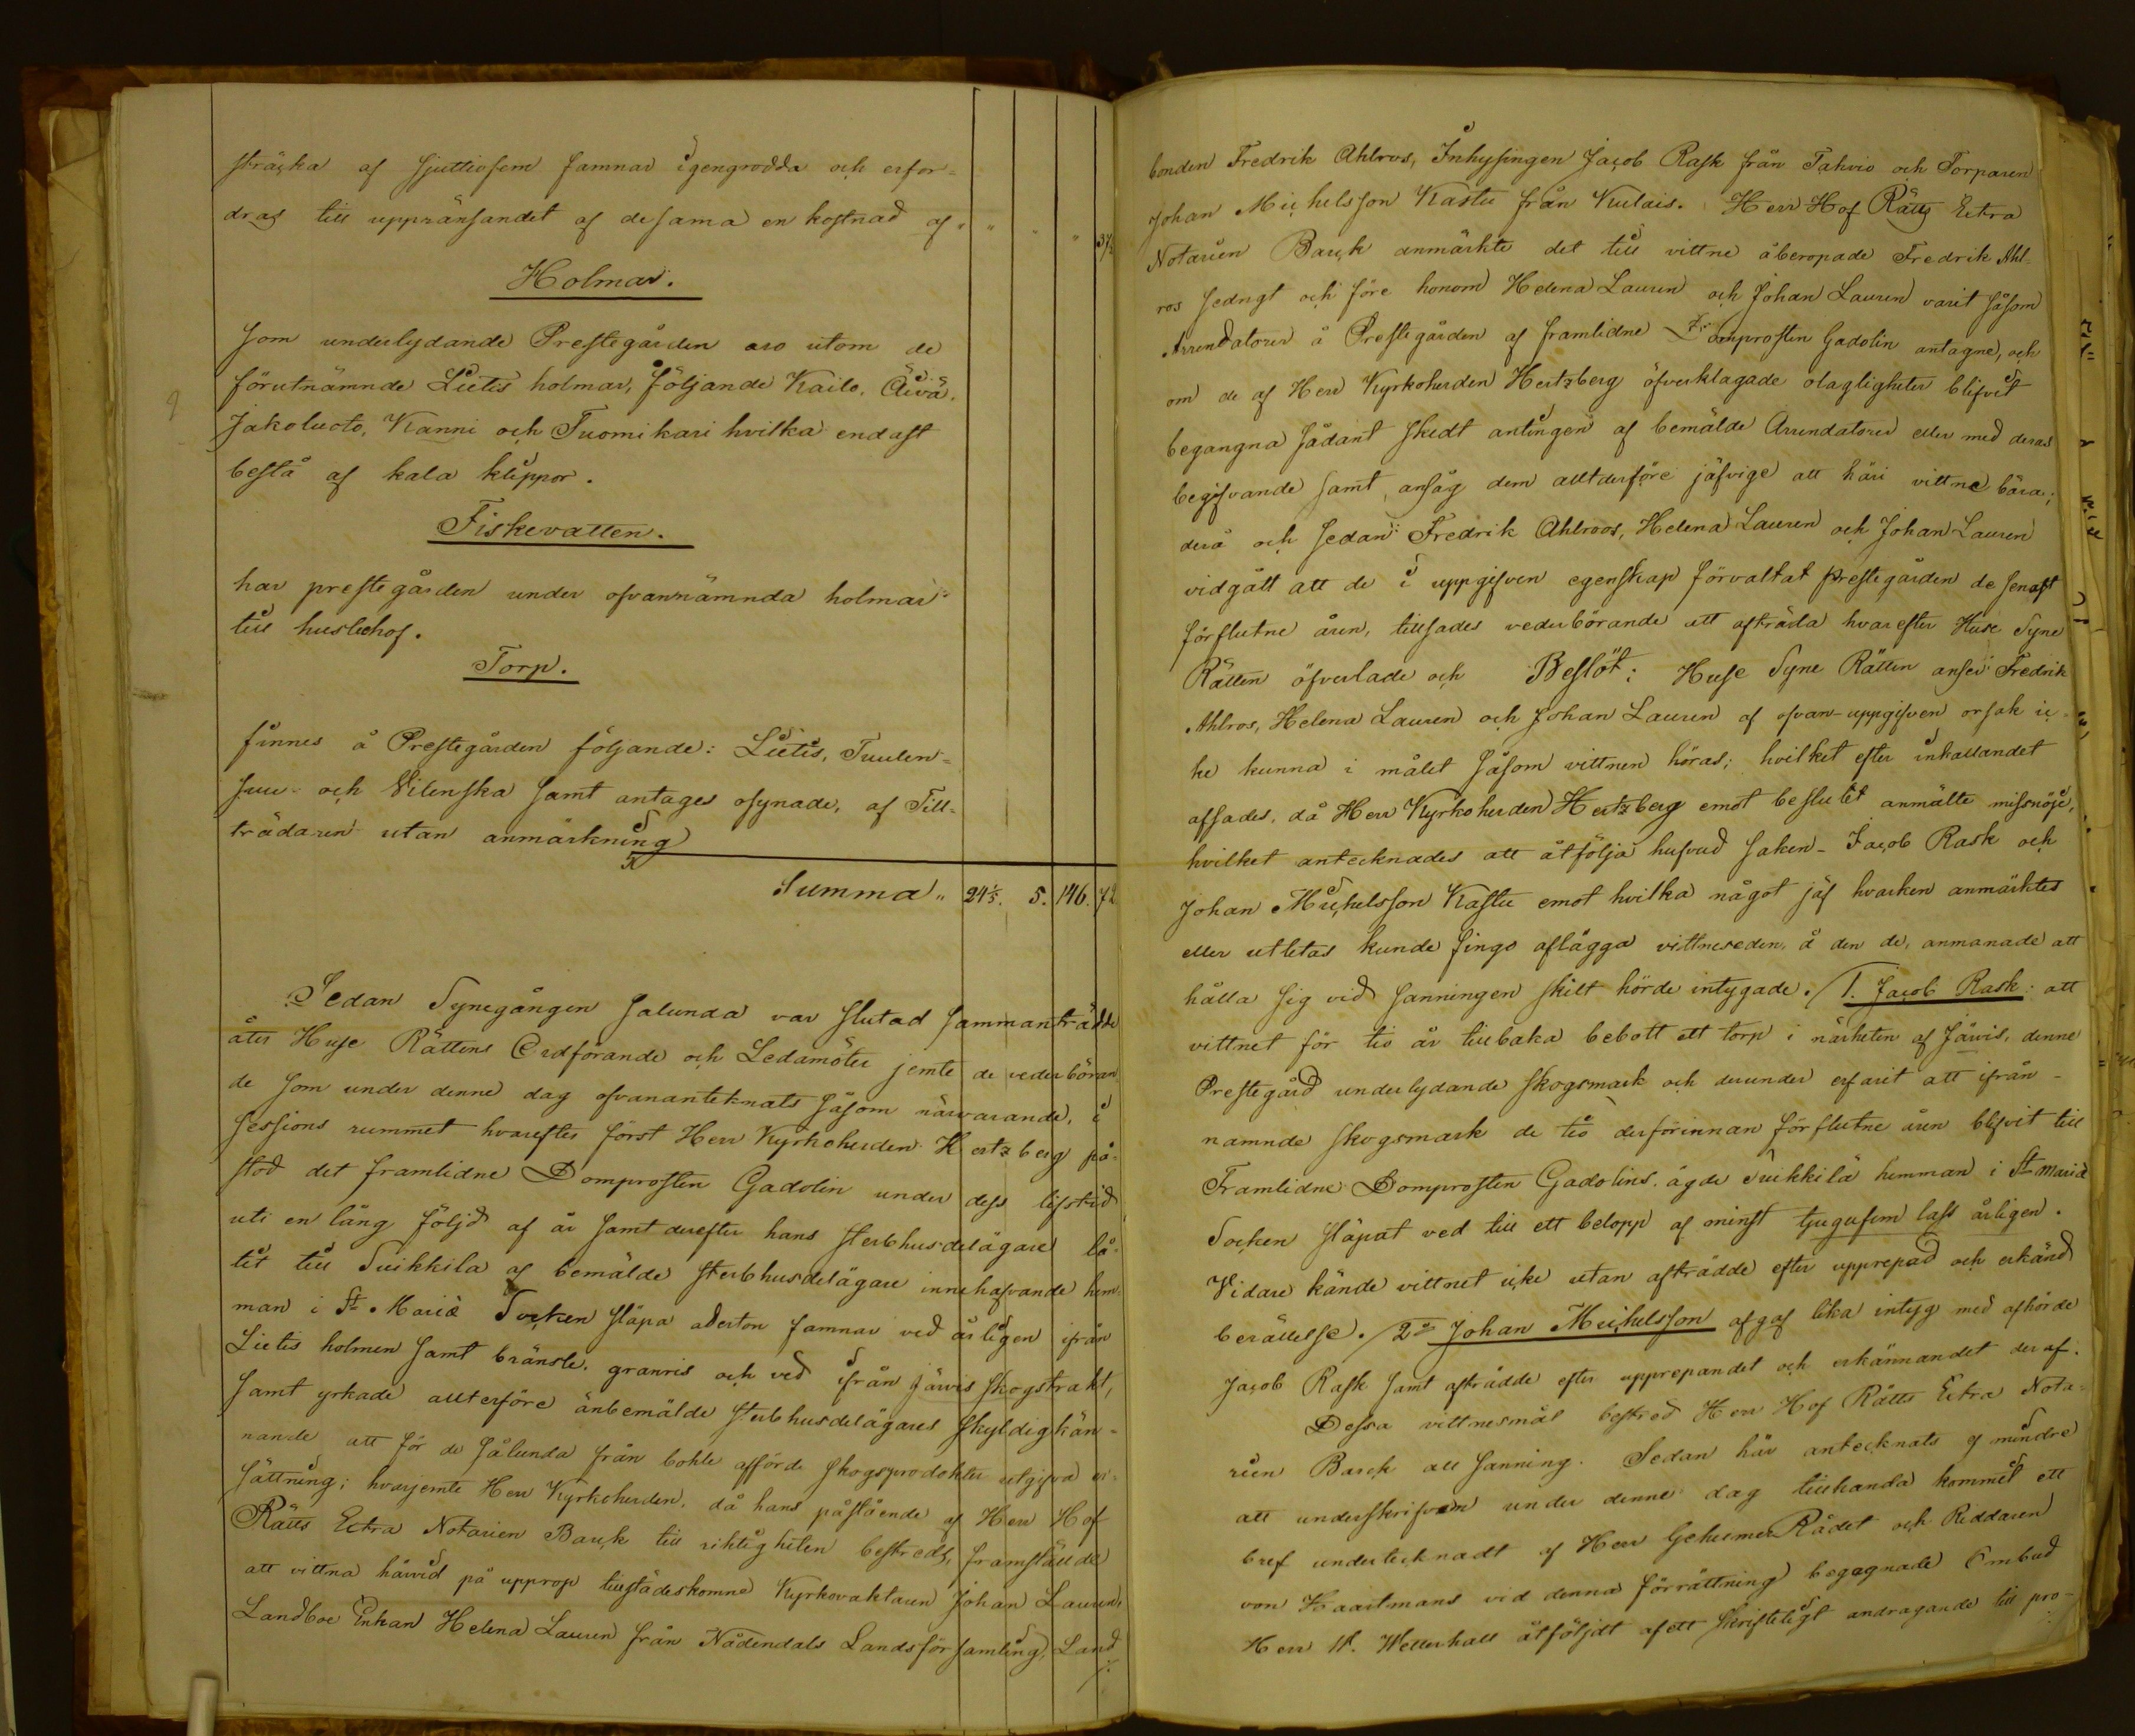 sträcka af sjuttiofem famnar igengrodda och erfor-
dras till uppränsandet af desama en kostnad af " " " " 37½
Holmar.
Som underlydande Prestegården äro utom de
förutnämnde Lietis holmar, följande Kailo, Äivä,
Jakoluoto, Kanni och Tuomikari hvilka endast
bestå af kala klippor.
Fiskevatten.
har prestegården under ofvannämnda holmar
till husbehof.
Torp.
finnes å Prestegården följande: Lietis, Tuulen-
suu och Vilenska samt antages osynade, af Till-
trädaren utan anmärkning
Summa " 24⅕. 5. 146. 72
Sedan Synegången salunda var slutad sammanträdde
åter Huse Rättens Ordförande och Ledamöter jemte de vederböran
de som under denne dag ofvananteknats såsom närvarande, i
sessions rummet hvarefter först Herr Kyrkoherden Hertzberg på-
stod det framlidne Domprosten Gadolin under dess lifstid
uti en lång följd af år samt derefter hans sterbhusdelägare lå-
tit till Suikkila af bemälde sterbhusdelägare innehafvande hem-
man i St Mariæ Socken släpa aderton famnar ved årligen ifrån
Lietis holmen samt bränsle, granris och ved ifrån järvis skogstrakt,
samt yrkade allt erföre änbemälde sterbhusdelägares skyldigkän-
nande att för de sålunda från bohle afförde skogsprodukter utgifva er-
sättning; hvarjemte Herr Kyrkoherden, då hans påstående af Herr Hof
Rätts Extra Notarien Barck till riktigheten bestreds, framställde
att vittna härvid på upprop tillstädeskomne Kyrkovaktaren Johan Lauren,
Landboe Enkan Helena Lauren från Nådendals Landsförsamling, Land
bonden Fredrik Ahlroos, Inhysingen Jacob Rask från Tahvio och Torparen
Johan Michelsson Kastu från Kulais. Herr Hof Rätts Extra
Notarien Barck anmärkte det till vittne åberopade Fredrik Ahl-
ros sednst och före honom Helena Lauren och Johan Lauren varit såsom
Arrendatorer å Prestegården af framlidne Domprosten Gadolin antagne, och
om de af Herr Kyrkoherden Hertzberg öfverklagade olagligheter blifvit
begangna sådant skedt antingen af bemälde Arrendatorer eller med deras
begifvande samt, ansåg dem alltderföre jäfvige att häri vittne bära;
derå och sedan Fredrik Ahlroos, Helena Lauren och Johan Lauren
vidgått att de i uppgifven egenskap förvaltat prestegården de senast
förflutne åren, tillsades vederbörande att afträda hvarefter Huse Syne
Rätten öfverlade och Beslöt: Huse Syne Rätten anser Fredrik
Ahlros, Helena Lauren och Johan Lauren af ofvan-uppgifven orsak ic-
ke kunna i målet såsom vittnen höras; hvilket efter inkallandet
afsades, då Herr Kyrkoherden Hertzberg emot beslutet anmälte missnöje,
hvilket antecknades att åtfölja hufvud saken - Jacob Rask och
Johan Michelsson Kastu emot hvilka något jäf hvarken anmärktes
eller utletas kunde fingo aflägga vittneseden, å den de, anmanade att
hålla sig vid sanningen skilt hörde intygade. 1. Jacob Rask: att
vittnet för tio år tillbaka bebott ett torp i närheten af Järvis, denne
Prestegård underlydande skogsmark och derunder erfarit att ifrån-
nämnde skogsmark de tio derförinnan förflutne åren blifvit till
Framlidne Domprosten Gadolins ägde Suikkilä hemman i St Mariæ
Socken släpat ved till ett belopp af minst tjugufem lass årligen.
Vidare kände vittnet icke utan afträdde efter upprepad och erkänd
berättelse. 2o Johan Michelsson afgaf lika intyg med afhörde
Jacob Rask samt afträdde efter upprepandet och erkännandet deraf.
Dessa vittnesmål bestred Herr Hof Rätts Extra Nota-
rien Barck all sanning. Sedan här antecknats ej mindre
att underskrifven under denne dag tillhanda kommit ett
bref undertecknadt af Herr Geheime Rådet och Riddaren
von Haartmans vid denna förrättning begagnade Ombud
Herr W. Wetterhall åtföljdt af ett skrifteligt andragande till pro-